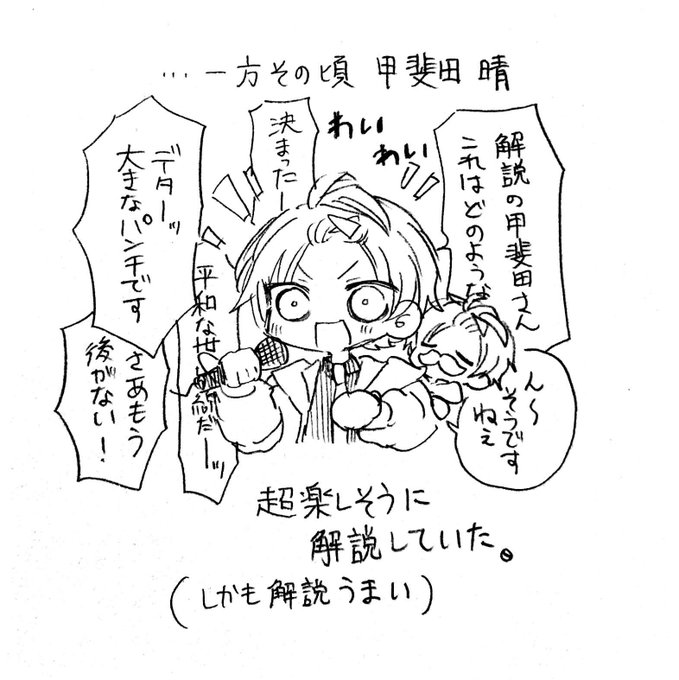 …一方その頃 甲斐田 晴
解説の甲斐田さん
これはどのような
ん〜
そうです
ねぇ
わい
わい
決まったー
デターッ
大きなパンチです
平和な世
線だーッ
さあもう
後がない！
超楽しそうに
解説していた。
(しかも解説うまい)